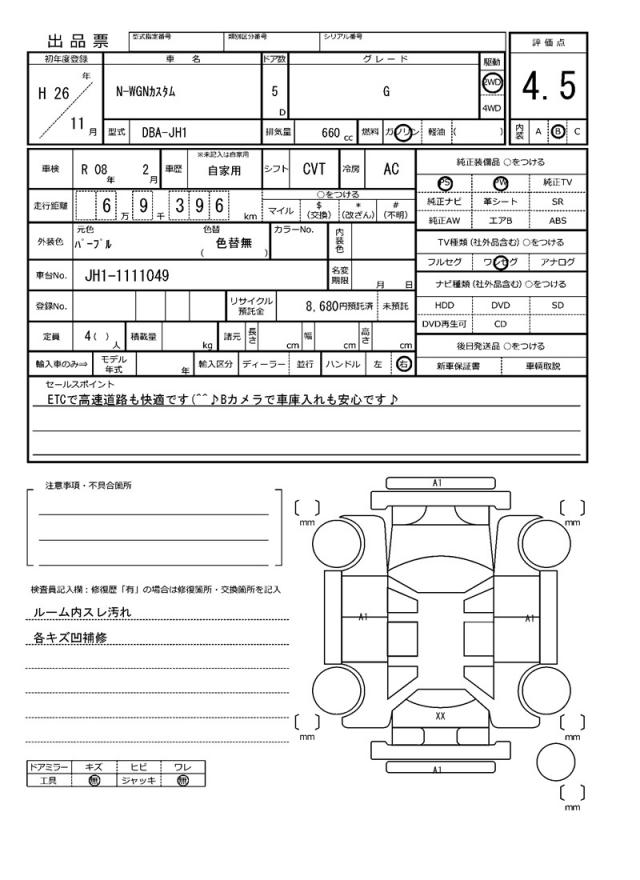 出品票 型式指定番号 類別区分番号 シリアル番号
評価点
初年度登録 車名 ドア数 グレード 駆動
H 26 年 11 月 N-WGNカスタム 5 D G 2WD 4WD 4.5
型式 DBA-JH1 排気量 660 cc 燃料 ガソリン 軽油 ( ) 内装 A B C
車検 R 08 年 2 月 車歴 ※未記入は自家用 自家用 シフト CVT 冷房 AC
純正装備品 ○をつける
PS PW 純正TV
純正ナビ 革シート SR
純正AW エアB ABS
走行距離 6 万 9 千 3 9 6 km
○をつける
マイル $ (交換) * (改ざん) # (不明)
外装色 元色 パープル 色替 ( 色替無 ) カラーNo. 内装色
TV種類(社外品含む)○をつける
フルセグ ワンセグ アナログ
車台No. JH1-1111049 名変期限 月 日
ナビ種類(社外品含む)○をつける
HDD DVD SD
DVD再生可 CD
登録No. リサイクル預託金 8,680円預託済 未預託
定員 4( ) 人 積載量 kg 諸元 長さ cm 幅 cm 高さ cm
後日発送品 ○をつける
新車保証書 車輌取説
輸入車のみ⇒ モデル年式 年 輸入区分 ディーラー 並行 ハンドル 左 右
セールスポイント
ETCで高速道路も快適です(^^♪Bカメラで車庫入れも安心です♪
注意事項・不具合箇所
検査員記入欄:修復歴「有」の場合は修復箇所・交換箇所を記入
ルーム内スレ汚れ
各キズ凹補修
ドアミラー キズ ヒビ ワレ
工具 無 ジャッキ 無
A1
mm mm
A1 A1
XX
mm mm
A1
mm